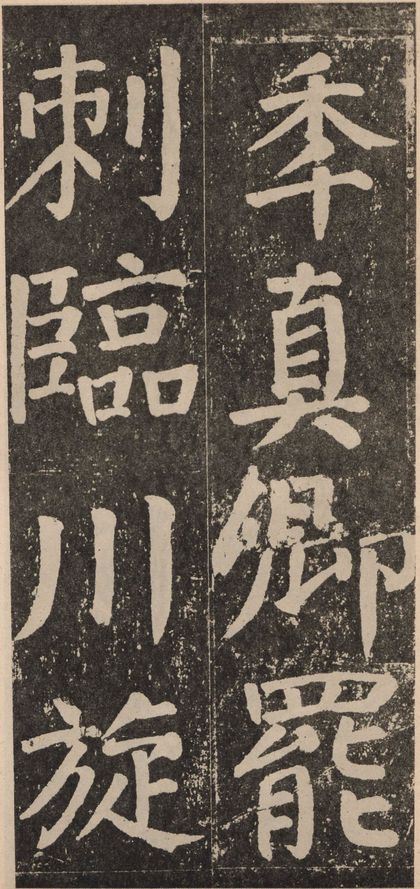 秊真卿罷
刺臨川旋